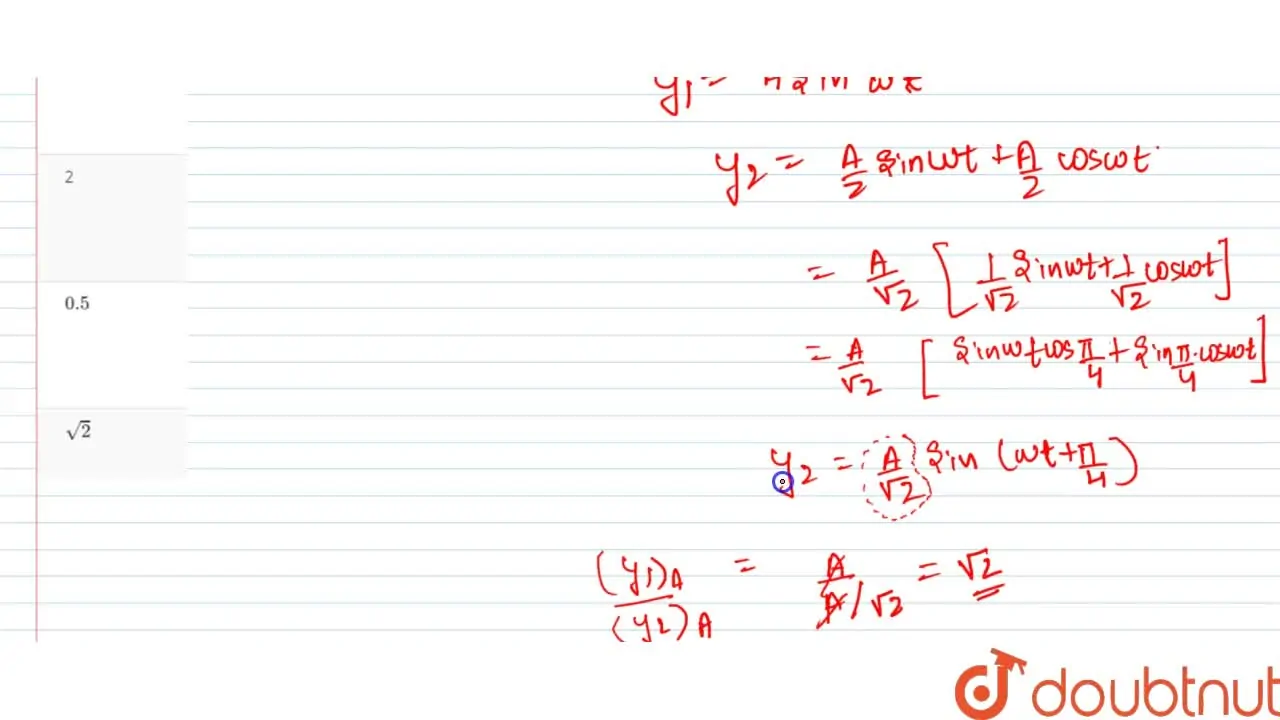 y₁ = A sin ωt
2
y₂ = A/2 sin ωt + A/2 cos ωt
0.5
= A/√2 [1/√2 sin ωt + 1/√2 cos ωt]
= A/√2 [sin ωt cos π/4 + sin π/4 . cos ωt]
√2
y₂ = A/√2 sin (ωt + π/4)
(y₁)A / (y₂)A = A / A/√2 = √2
doubtnut